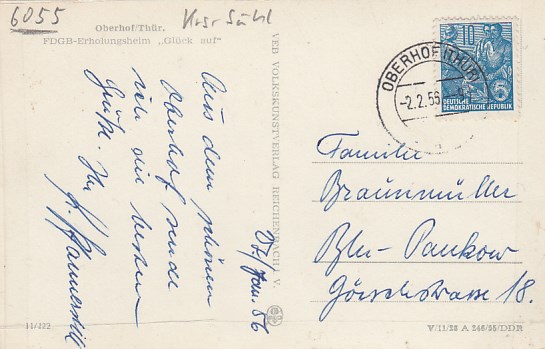 6055
Krsr Suhl
Oberhof/Thür.
FDGB-Erholungsheim „Glück auf"
Aus dem schönen
Oberhof sende
ich die besten
Grüße. Ihr
27./Jan. 56
11/422
VEB VOLKSKUNSTVERLAG REICHENBACH I. V.
OBERHOF (THÜR)
-2.2.56
10
5
DEUTSCHE
DEMOKRATISCHE REPUBLIK
Familie
Braunmüller
Bln-Pankow
Görschstrasse 18.
V/11/28 A 246/55/DDR